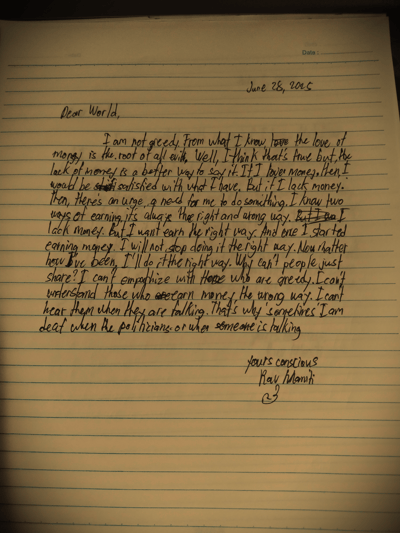 Date:
June 28, 2025
Dear World,
I am not greedy. From what I know, the love of
money is the root of all evils. Well, I think that's true but, the
lack of money is a better way to say it. If I love money, then, I
would be satisfied with what I have. But if I lack money.
Then, there's an urge, a need for me to do something. I know two
ways of earning it's always the right and wrong way. But I
lack money. But I want earn the right way. And one I started
earning money I will not stop doing it the right way. No matter
how I've been, I'll do it the right way. Why can't people just
share? I can't empathize with those who are greedy. I can't
understand those who earn money the wrong way. I can't
hear them when they are talking. That's why sometimes I am
deaf when the politicians or when someone is talking
yours conscious